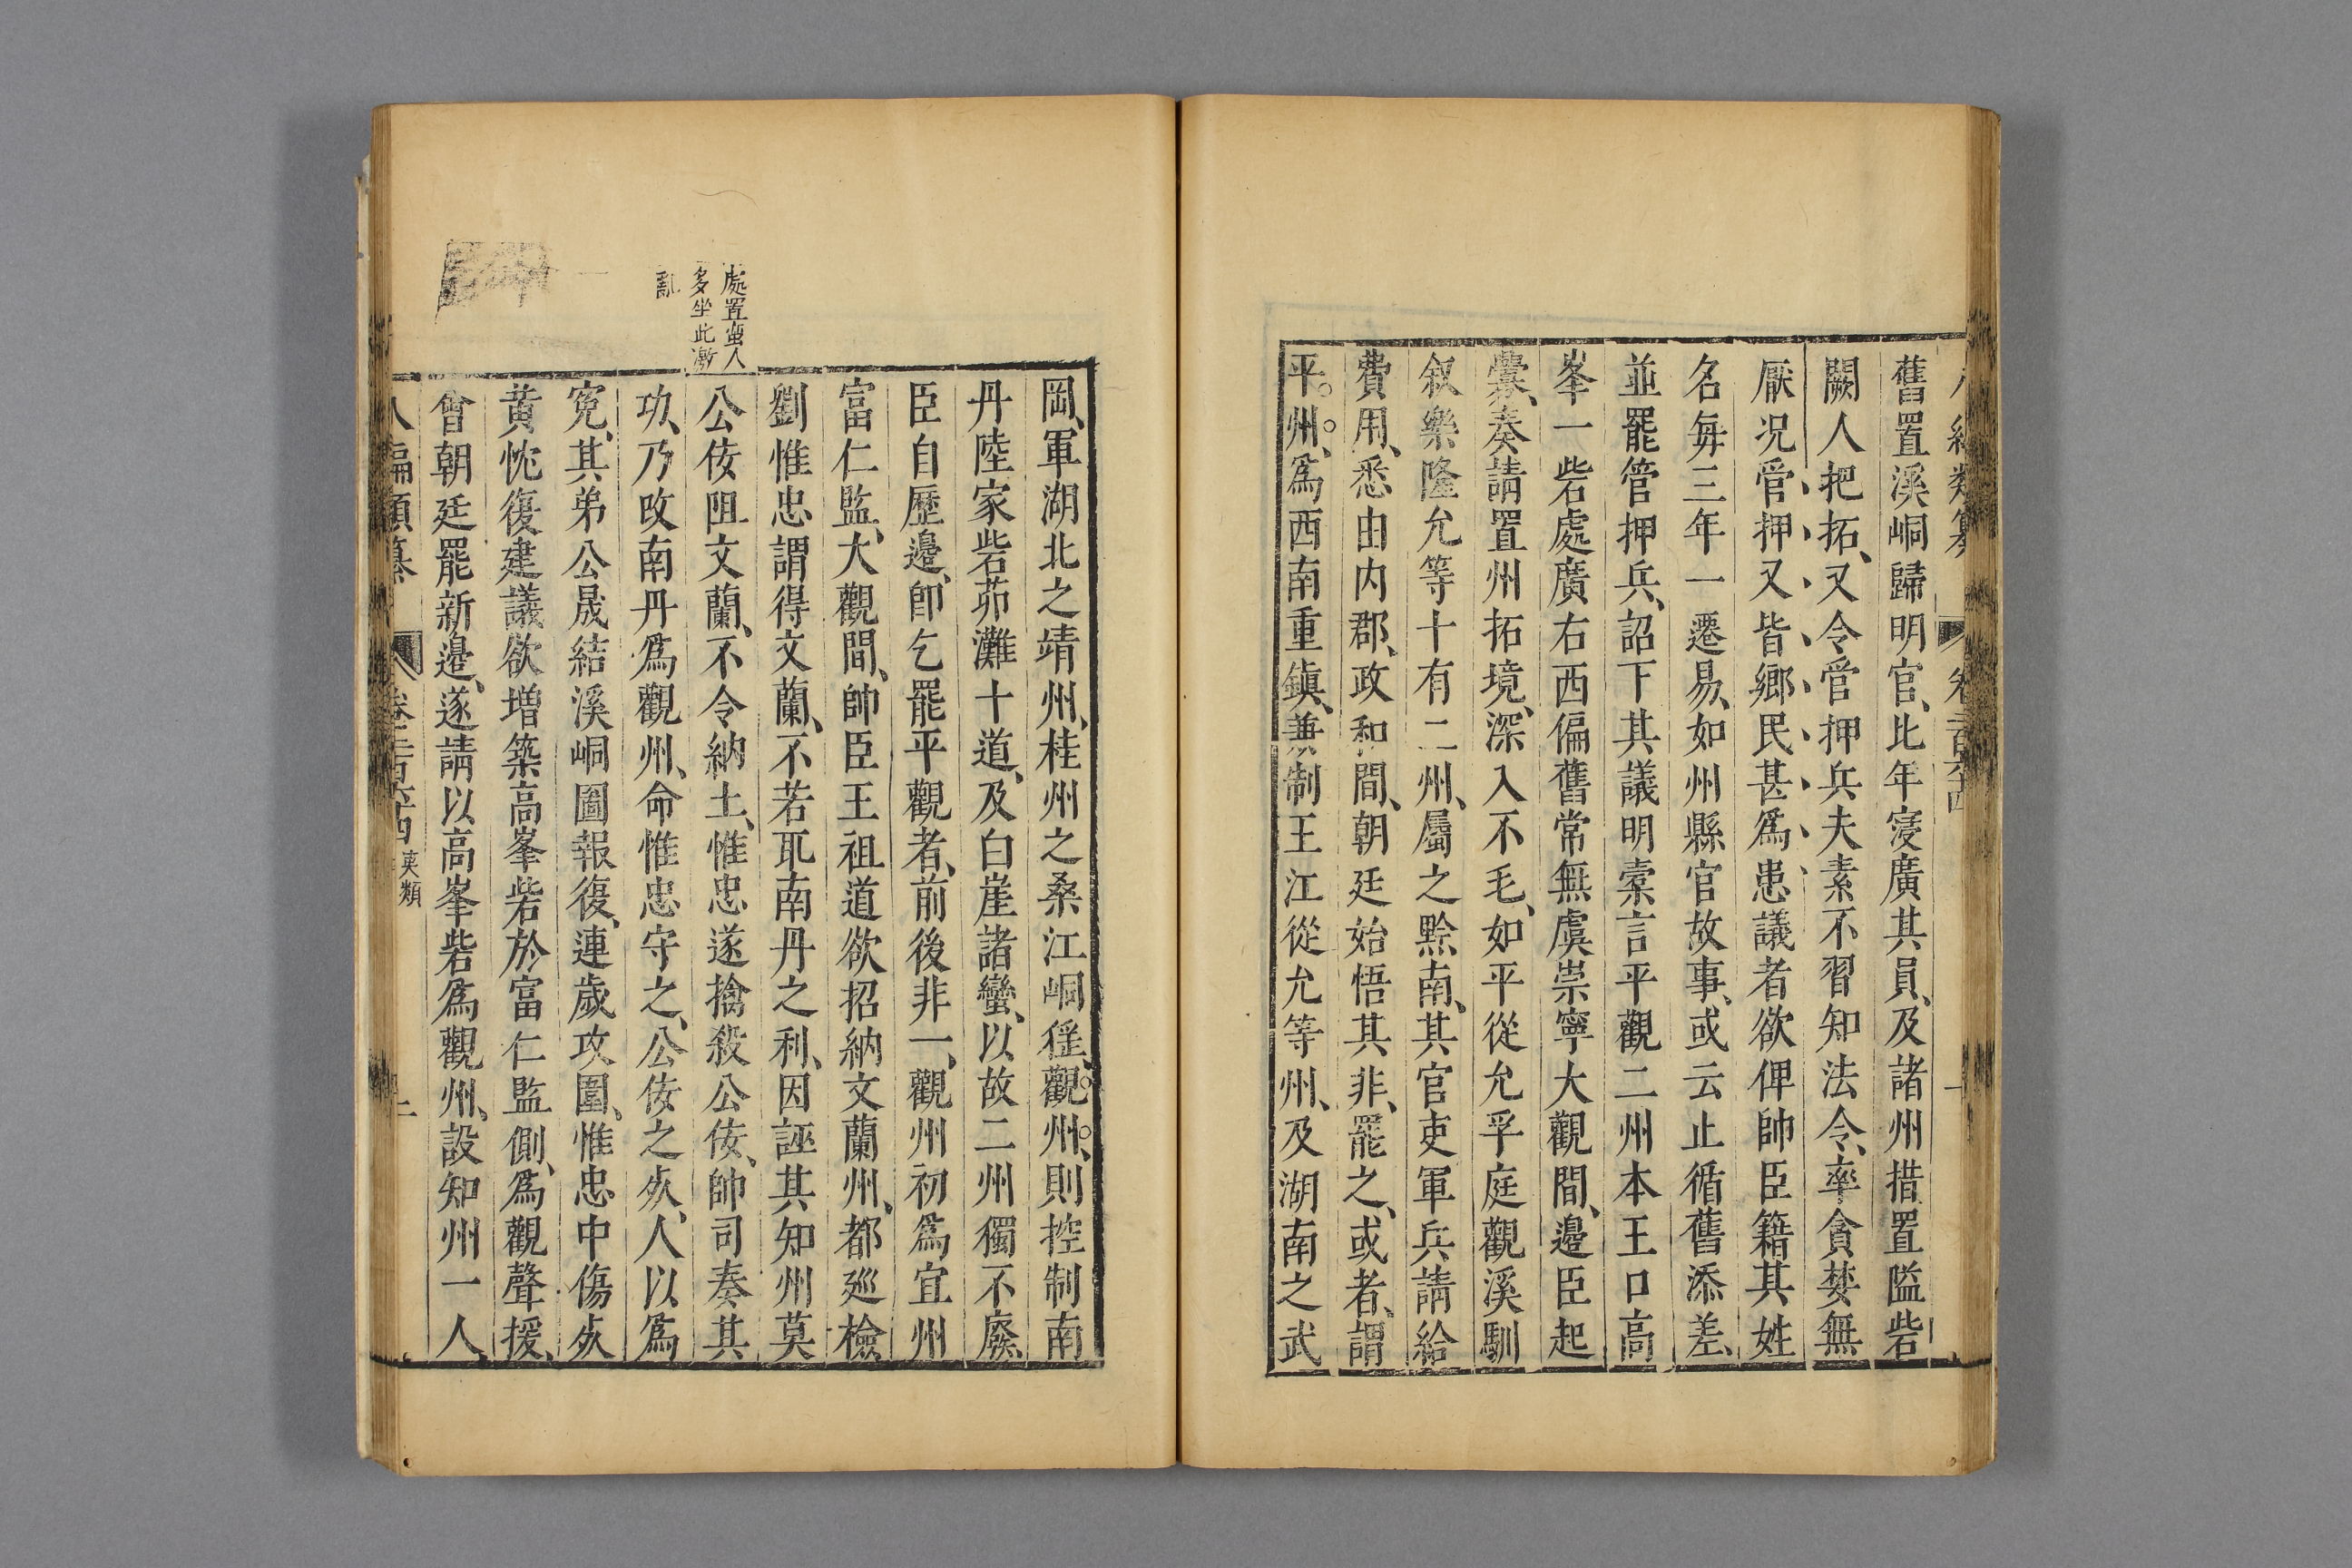 舊置溪峒歸明官、比年寖廣其員、及諸州措置隘砦
闕人把拓、又令管押兵夫素不習知法令、率貪婪無
厭况管押又皆鄉民甚爲患議者欲俾帥臣籍其姓
名毎三年一遷易、如州縣官故事、或云止循舊添差、
並罷管押兵、詔下其議明橐言平觀二州本王口高
峯一砦處廣右西偏舊常無虞崇寧大觀間、邉臣起
釁、奏請置州拓境、深入不毛、如平從允孚庭觀溪馴
叙樂隆允等十有二州、屬之黔南、其官吏軍兵請給
費用、悉由内郡、政和間、朝廷始悟其非、罷之、或者、謂
平州、爲西南重鎭、兼制王江從允等州、及湖南之武
岡、軍湖北之靖州、桂州之桑江峒猺、觀州、則控制南
丹陸家砦茆灘十道、及白崖諸蠻、以故二州獨不廢
臣自歷邉、卽乞罷平觀者、前後非一、觀州初爲宜州
富仁監、大觀間、帥臣王祖道欲招納文蘭州、都廵檢
劉惟忠謂得文蘭、不若取南丹之利、因誣其知州莫
公佞阻文蘭、不令納土、惟忠遂擒殺公佞、帥司奏其
功、乃改南丹爲觀州、命惟忠守之、公佞之死、人以爲
寃、其弟公晟結溪峒圖報復、連歲攻圍、惟忠中傷死
黄忱復建議欲增築高峯砦於富仁監側、爲觀聲援、
會朝廷罷新邉、遂請以高峯砦爲觀州、設知州一人、
處置蠻人
多坐此激
亂